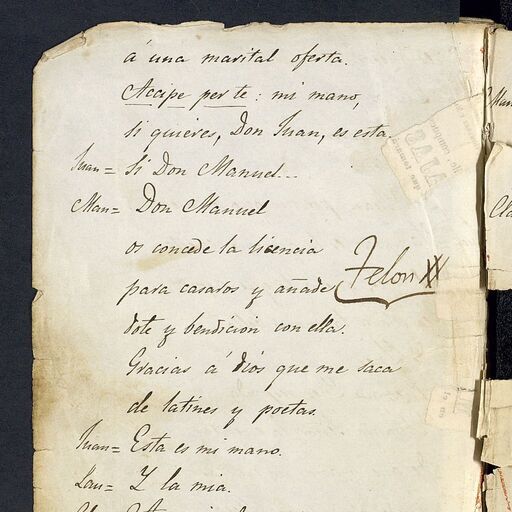 á una marital oferta.
Accipe per te: mi mano,
si quieres, Don Juan, es esta.
Juan= Si Don Manuel...
Man= Don Manuel
os concede la licencia
para casaros y añade
Telon
dote y bendicion con ella.
Gracias á dios que me saca
de latines y poetas.
Juan= Esta es mi mano.
Lau= Y la mia.